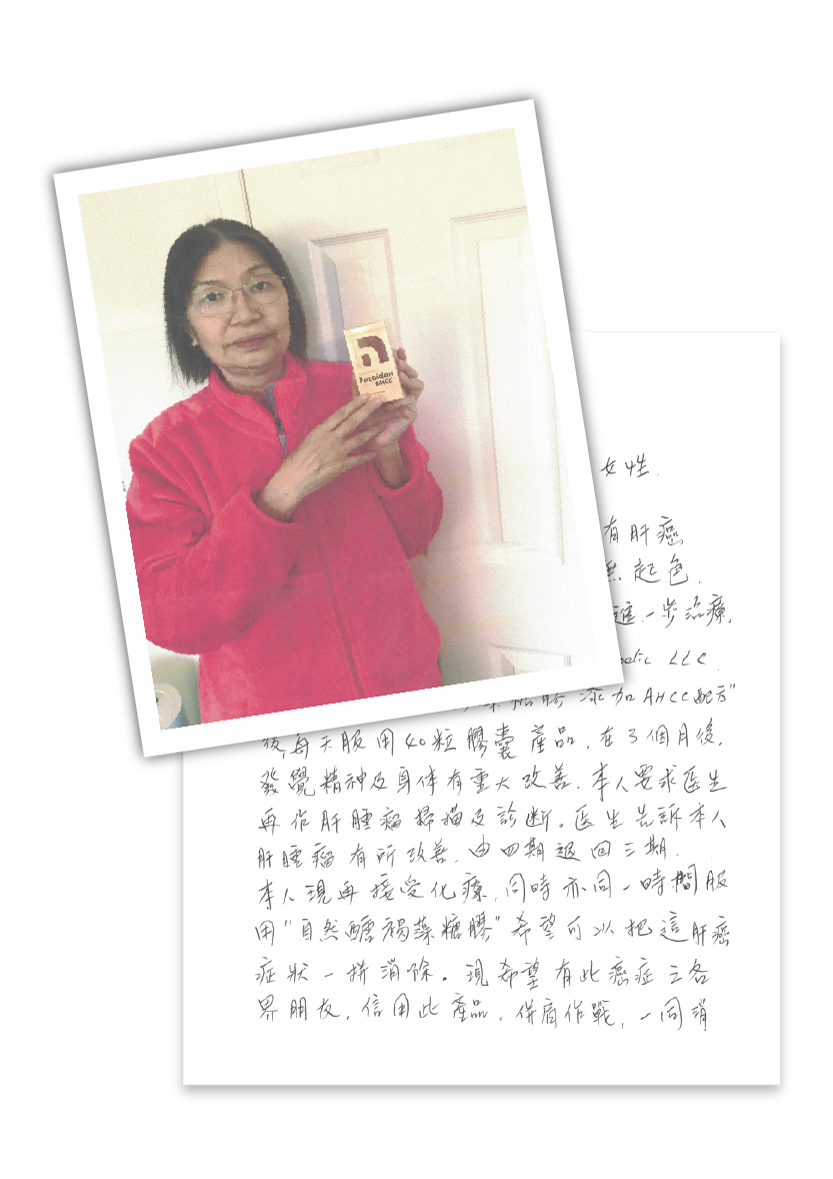 Fucoidan
AHCC
女性.
有肝癌
無起色.
進一步治療.
LLC.
添加AHCC配方"
後,每天服用40粒膠囊產品,在3個月後,
發覺精神及身体有重大改善.本人要求医生
再作肝腫瘤掃描及診断。医生告訴本人
肝腫瘤有所改善,由四期退回三期.
本人現再接受化療,同時亦同一時間服
用"自然醣褐藻糖膠"希望可以把這肝癌
症狀一拼消除。現希望有此癌症之各
界朋友,信用此產品,併肩作戰,一同消